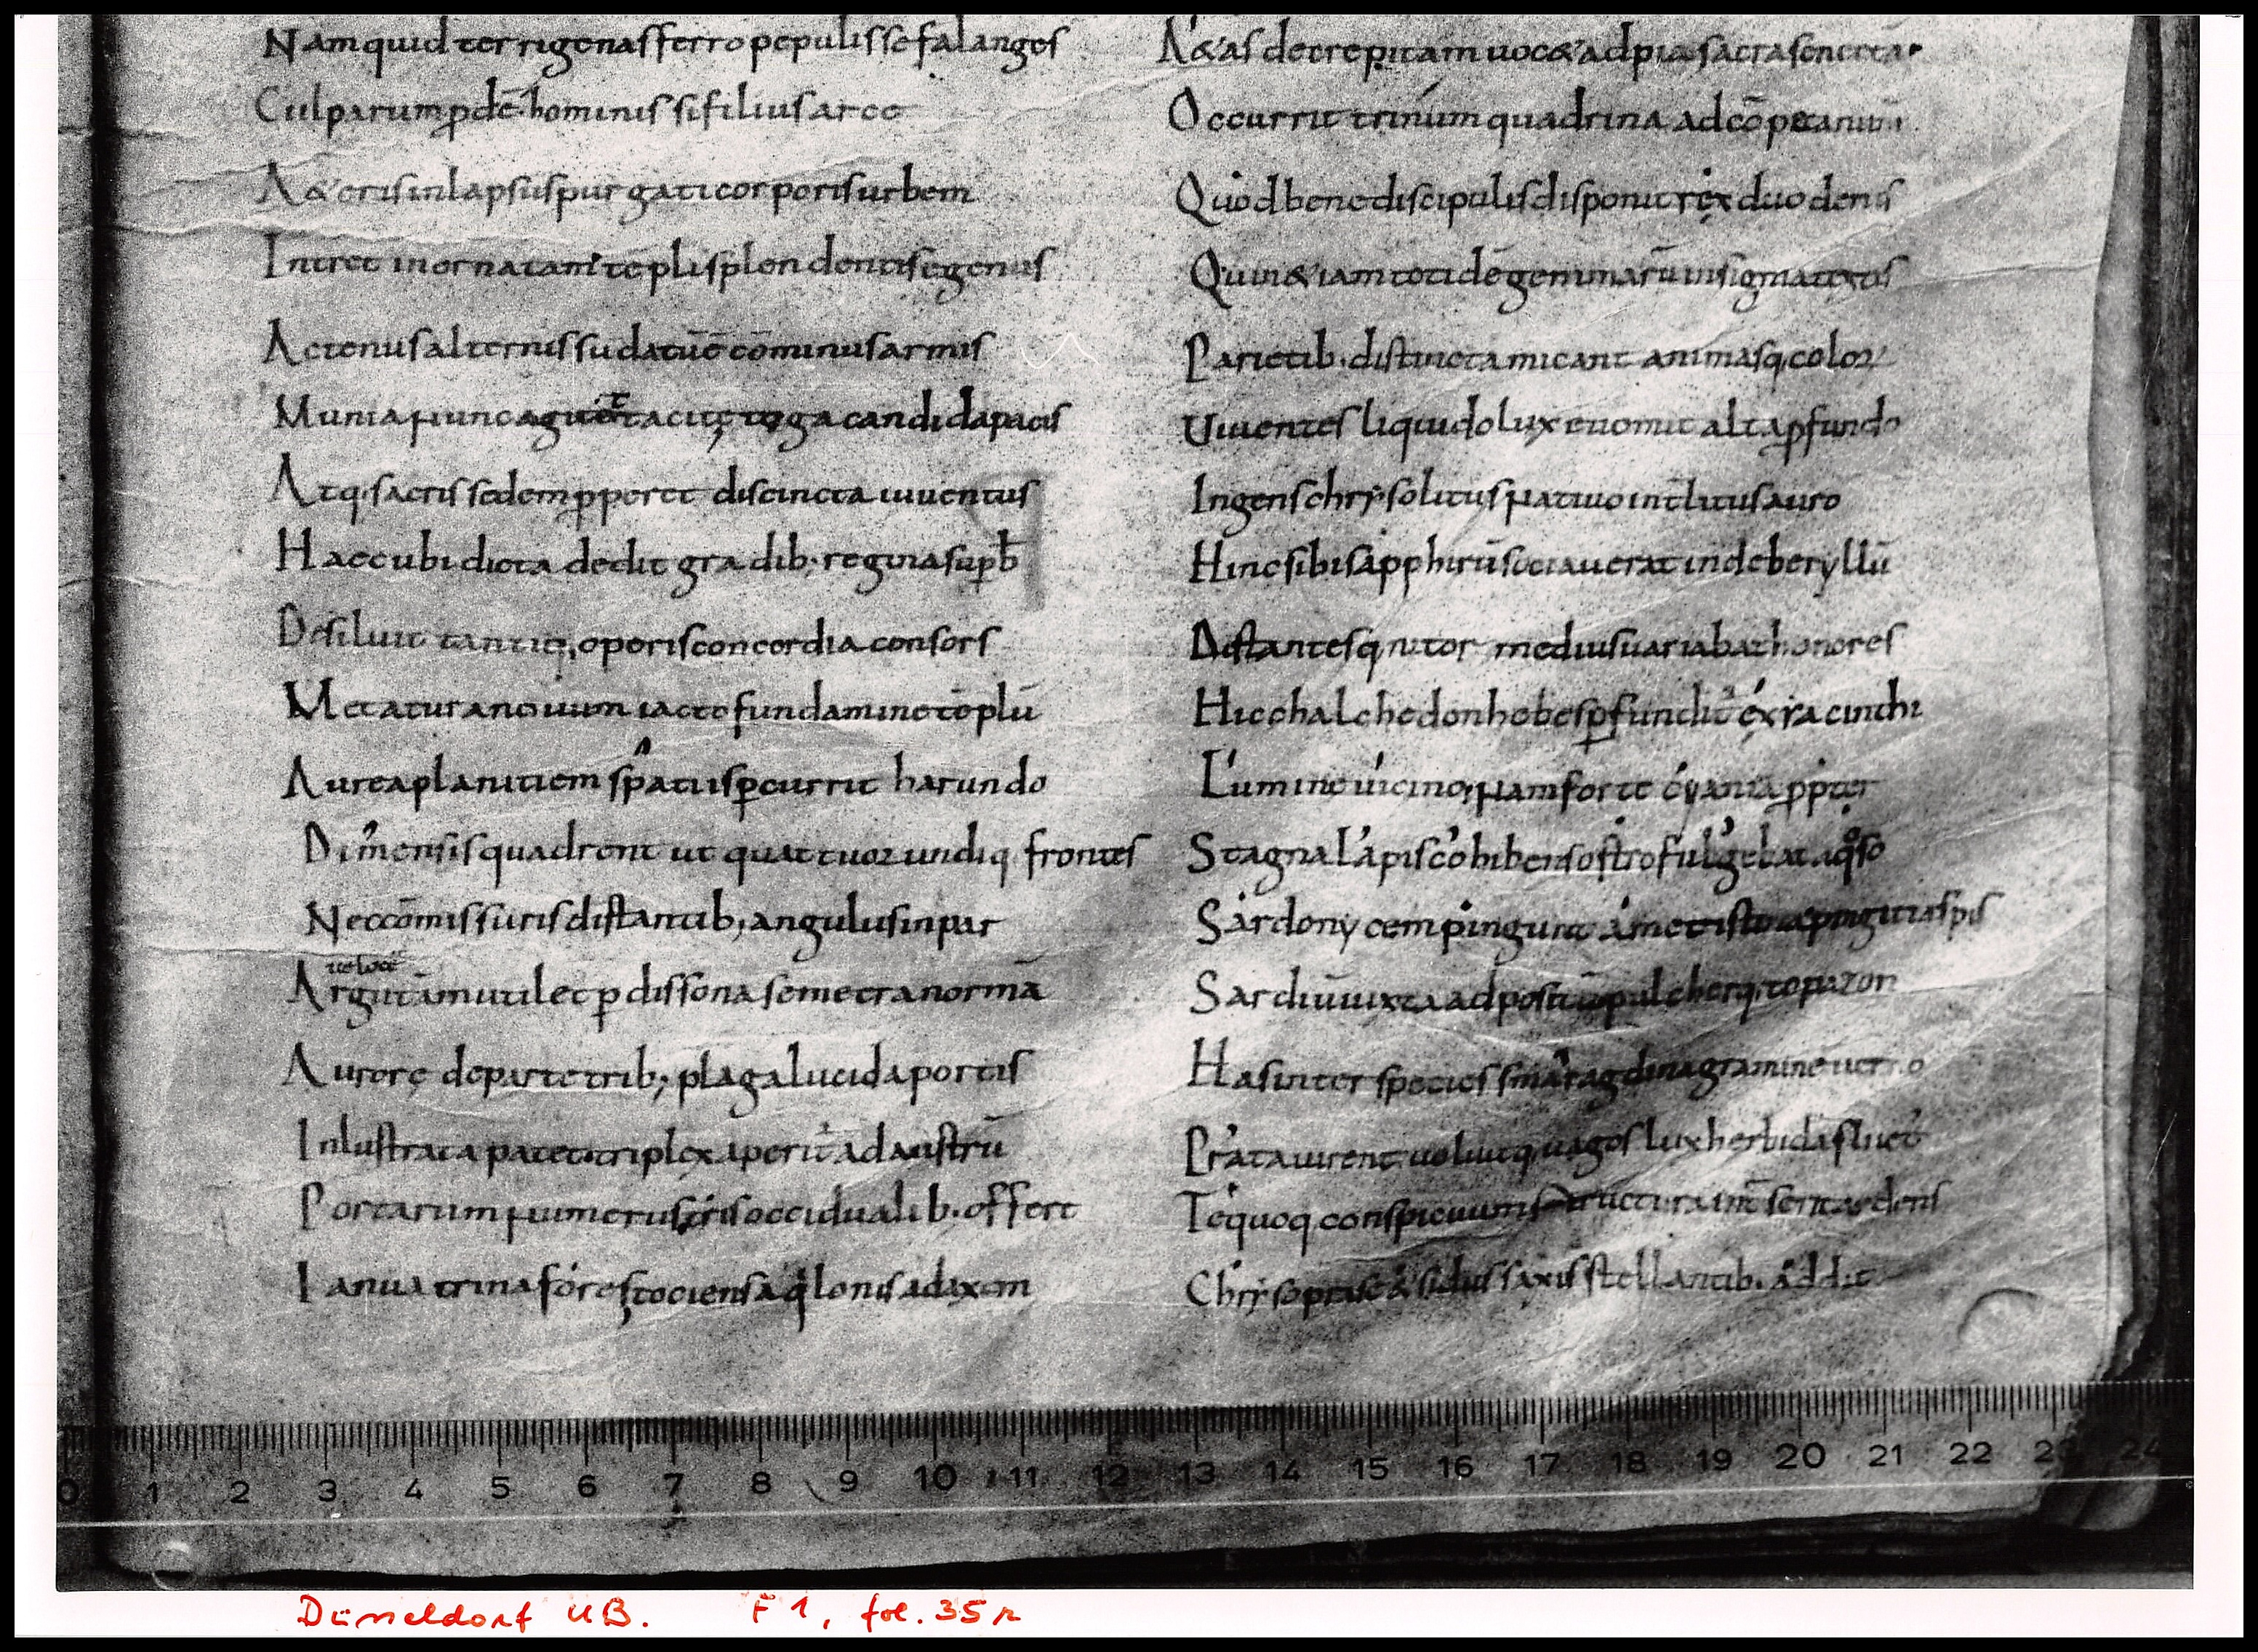 Nam quid terrigenas ferro pepulisse falanges
Culparum pdē. hominis si filius arce
A&eris inlapsus purgati corporis urbem
Intret inornatam tēpli splendentis egenus
Actenus alternis sudatū ē cōminus armis
Munia nunc agitet tacitę toga candida pacis
Atq; sacris sedem pperet discincta iuventus
Haec ubi dicta dedit gradib; regina supb
Desiluit tantiq; operis concordia consors
Metatura novum iacto fundamine tēplū
Aurea planitiem spatiis pcurrit harundo
Dimensis quadrent ut quattuor undiq frontes
Ne cōmissuris distantib; angulus inpar
veloce
Argutam mutilet p dissona semetra normā
Aurorę de parte trib; plaga lucida portis
Inlustrata patet triplex aperit ad austrū
Portarum numerus, tris occidualib. offert
Ianua trina fores, tociens aqlonis ad axem
A&as decrepitam voc& ad pia sacra senecta
Occurrit trinum quadrina ad cōpeta
Quod bene discipulis disponit rex duodenis
Quin & iam totidē gemmarū insignia textis
Parietib. distincta micant animasq, color
Viventes liquido lux evomit alta pfundo
Ingens chrysolitus nativo intlitus auro
Hinc sibi sapphirū sociaverat inde beryllū
Distantesq, nitor medius variabat honores
Hic chalchedon hebes pfundit ex iacinthi
Lumine vicino, nam forte cyania ppter
Stagna lapis cohibens ostro fulgebat aqso
Sardonycem pingunt ametisto pingit iaspis
Sardiū iuxta adpositū pulcherq, topazon
Has inter species smaragdina gramine verno
Prata virent volvitq, vagos lux herbida fluct
Te quoq conspicuum structura int serit ardens
Chrysoprase & sidus saxis stellantib. addit
0 1 2 3 4 5 6 7 8 9 10 11 12 13 14 15 16 17 18 19 20 21 22 23 24
Düsseldorf UB. F 1, fol. 35r